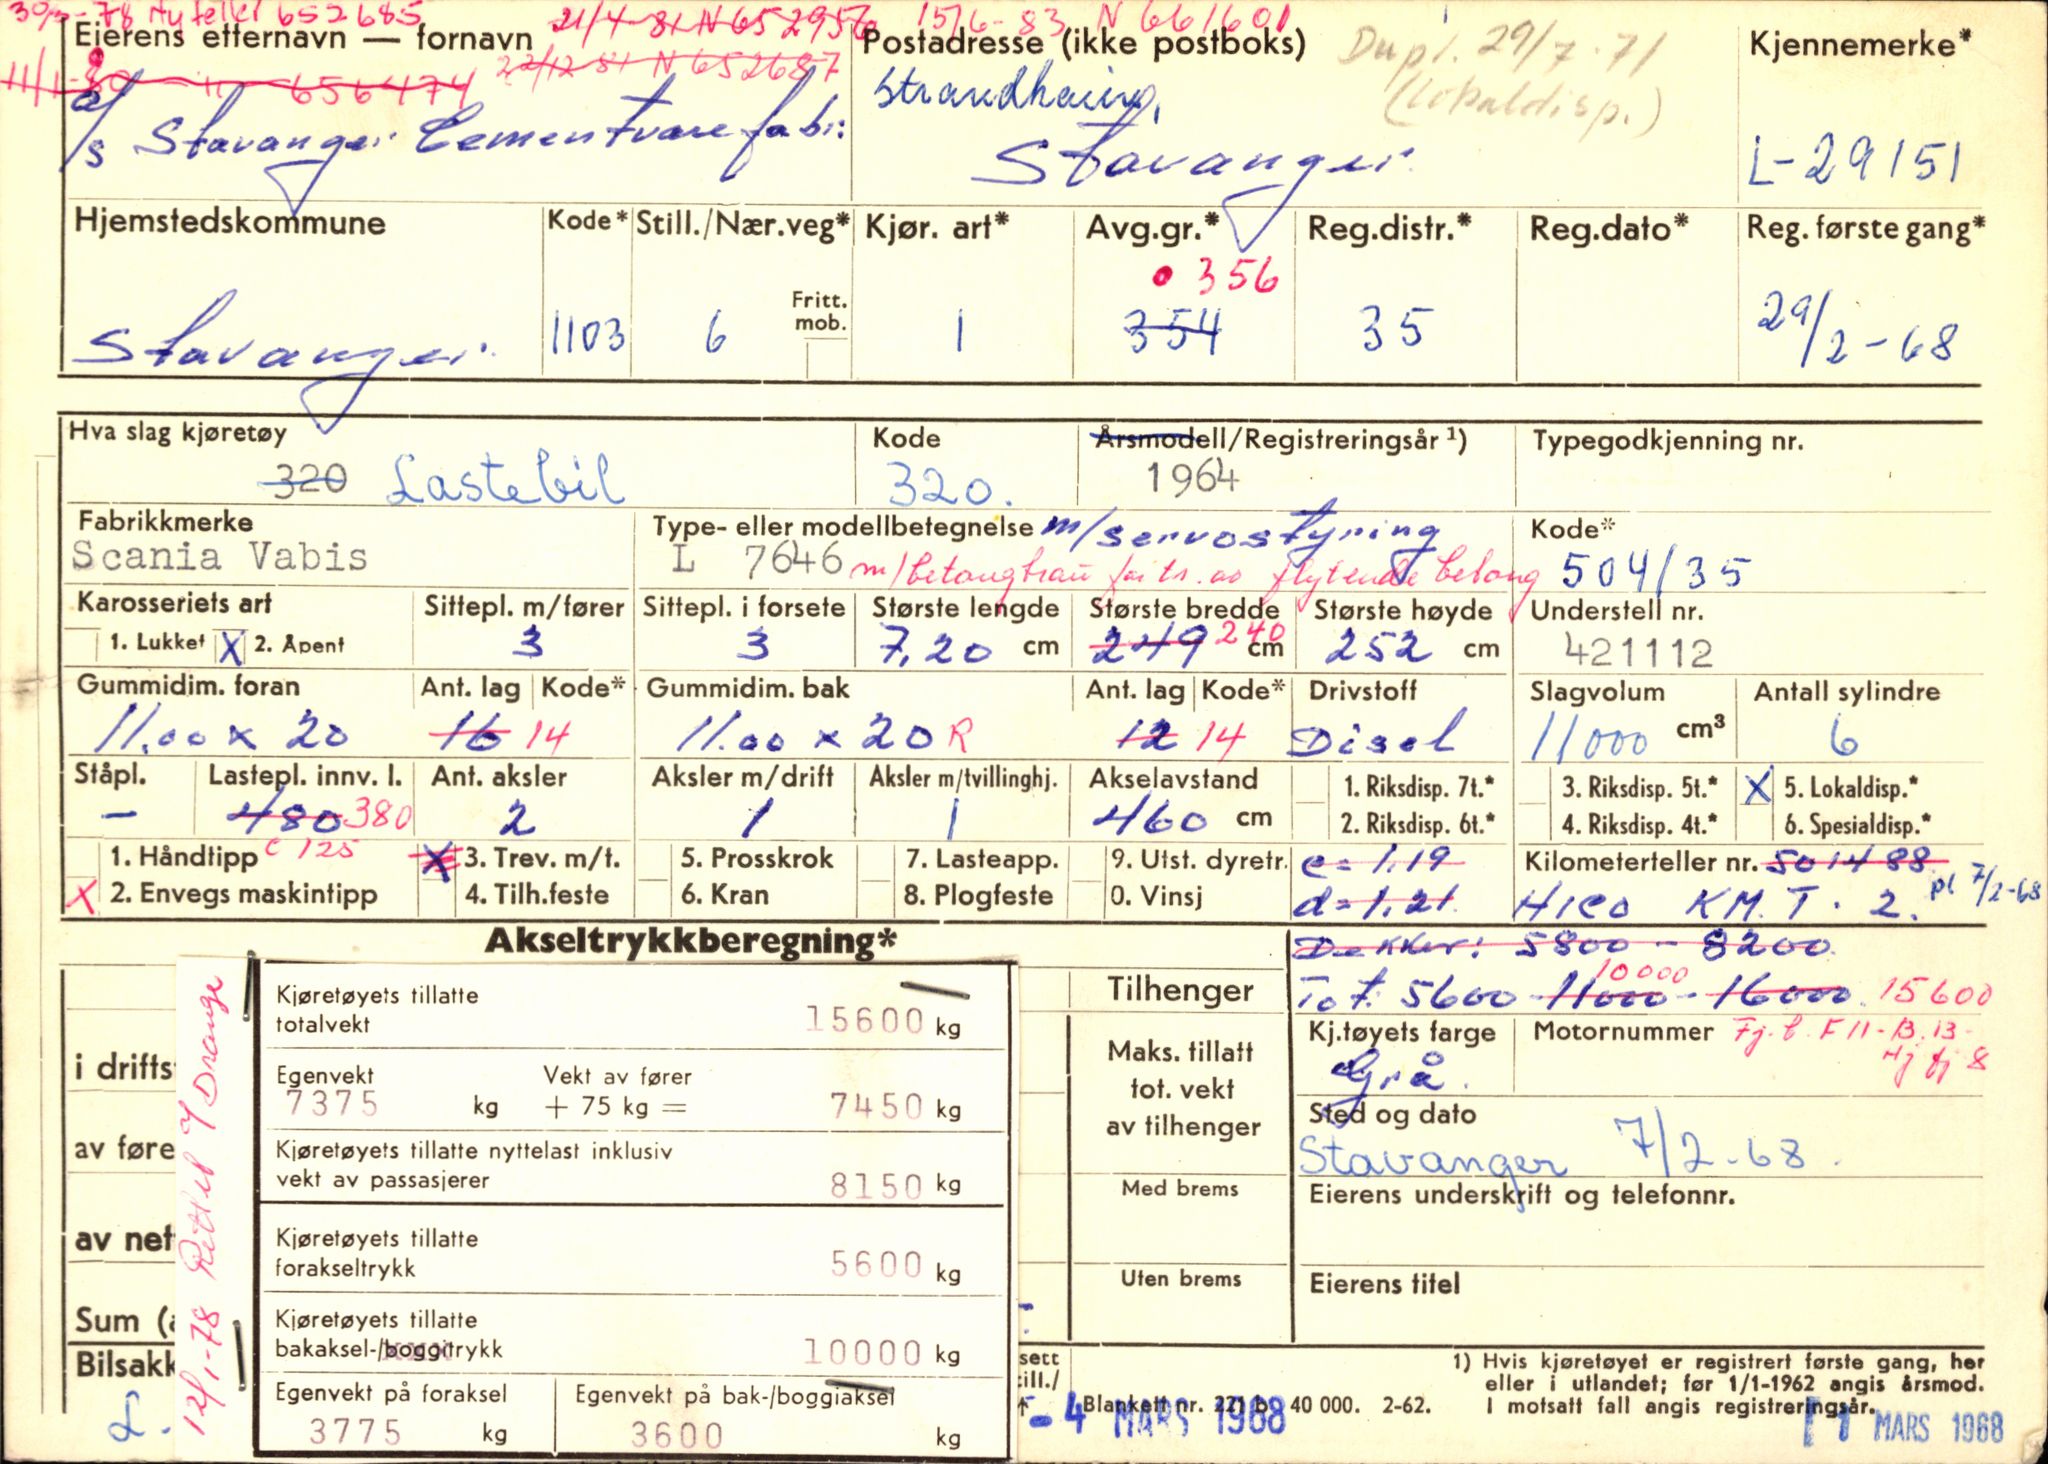 30/3-78 Ny teller 652685 21/4-81 N 652956 15/6-83 N 661601
Eierens etternavn — fornavn
11/1-80 656474 22/12 81 N 652687
a/s Stavanger Cementvarefabr.
Postadresse (ikke postboks)
Stavanger
Dupl. 29/7-71
(Lokaldisp.)
Kjennemerke*
L-29151
Hjemstedskommune
Stavanger
Kode*
1103
Still./Nær.veg*
6
Fritt.
mob.
Kjør. art*
1
Avg.gr.*
356
354
Reg.distr.*
35
Reg.dato*
Reg. første gang*
29/2-68
Hva slag kjøretøy
320 Lastebil
Kode
320.
Årsmodell/Registreringsår ¹)
1964
Typegodkjenning nr.
Fabrikkmerke
Scania Vabis
Type- eller modellbetegnelse m/servostyring
L 7646
Kode*
504/35
Karosseriets art
1. Lukket X 2. Åpent
Sittepl. m/fører
3
Sittepl. i forsete
3
Største lengde
7,20 cm
Største bredde
249 240 cm
Største høyde
252 cm
Understell nr.
421112
Gummidim. foran
11.00 x 20
Ant. lag Kode*
16 14
Gummidim. bak
11.00 x 20 R
Ant. lag Kode*
12 14
Drivstoff
Disel
Slagvolum
11000 cm³
Antall sylindre
6
Ståpl.
-
Lastepl. innv. l.
480 380
Ant. aksler
2
Aksler m/drift
1
Aksler m/tvillinghj.
1
Akselavstand
460 cm
1. Riksdisp. 7t.*
2. Riksdisp. 6t.*
3. Riksdisp. 5t.*
4. Riksdisp. 4t.*
X 5. Lokaldisp.*
6. Spesialdisp.*
1. Håndtipp c 125
X 2. Envegs maskintipp
X 3. Trev. m/t.
4. Tilh.feste
5. Prosskrok
6. Kran
7. Lasteapp.
8. Plogfeste
9. Utst. dyretr.
0. Vinsj
c = 1.19
d = 1.21
Kilometerteller nr. 501488
Hico KM.T. 2. pl 7/2-68
Akseltrykkberegning*
Dekker: 5800 - 8200
10000
Tot: 5600 - 11000 - 16000 15600
Tilhenger
Maks. tillatt
tot. vekt
av tilhenger
Med brems
Uten brems
Kj.tøyets farge
Grå.
Motornummer Fj. b. F 11 - B. 13 -
Hj fj 8
Sted og dato
Stavanger 7/2-68.
Eierens underskrift og telefonnr.
Eierens titel
i drifts
av føre
av net
Sum (
Bilsakk
12/1-78 Rettet
Kjøretøyets tillatte
totalvekt 15600 kg
Egenvekt Vekt av fører
7375 kg + 75 kg = 7450 kg
Kjøretøyets tillatte nyttelast inklusiv
vekt av passasjerer 8150 kg
Kjøretøyets tillatte
forakseltrykk 5600 kg
Kjøretøyets tillatte
bakaksel-/boggitrykk 10000 kg
Egenvekt på foraksel
3775 kg
Egenvekt på bak-/boggiaksel
3600 kg
sett
ill./
Blankett nr. 221 b. 40 000. 2-62.
- 4 MARS 1968
1) Hvis kjøretøyet er registrert første gang, her
eller i utlandet; før 1/1-1962 angis årsmod.
I motsatt fall angis registreringsår.
1 MARS 1968